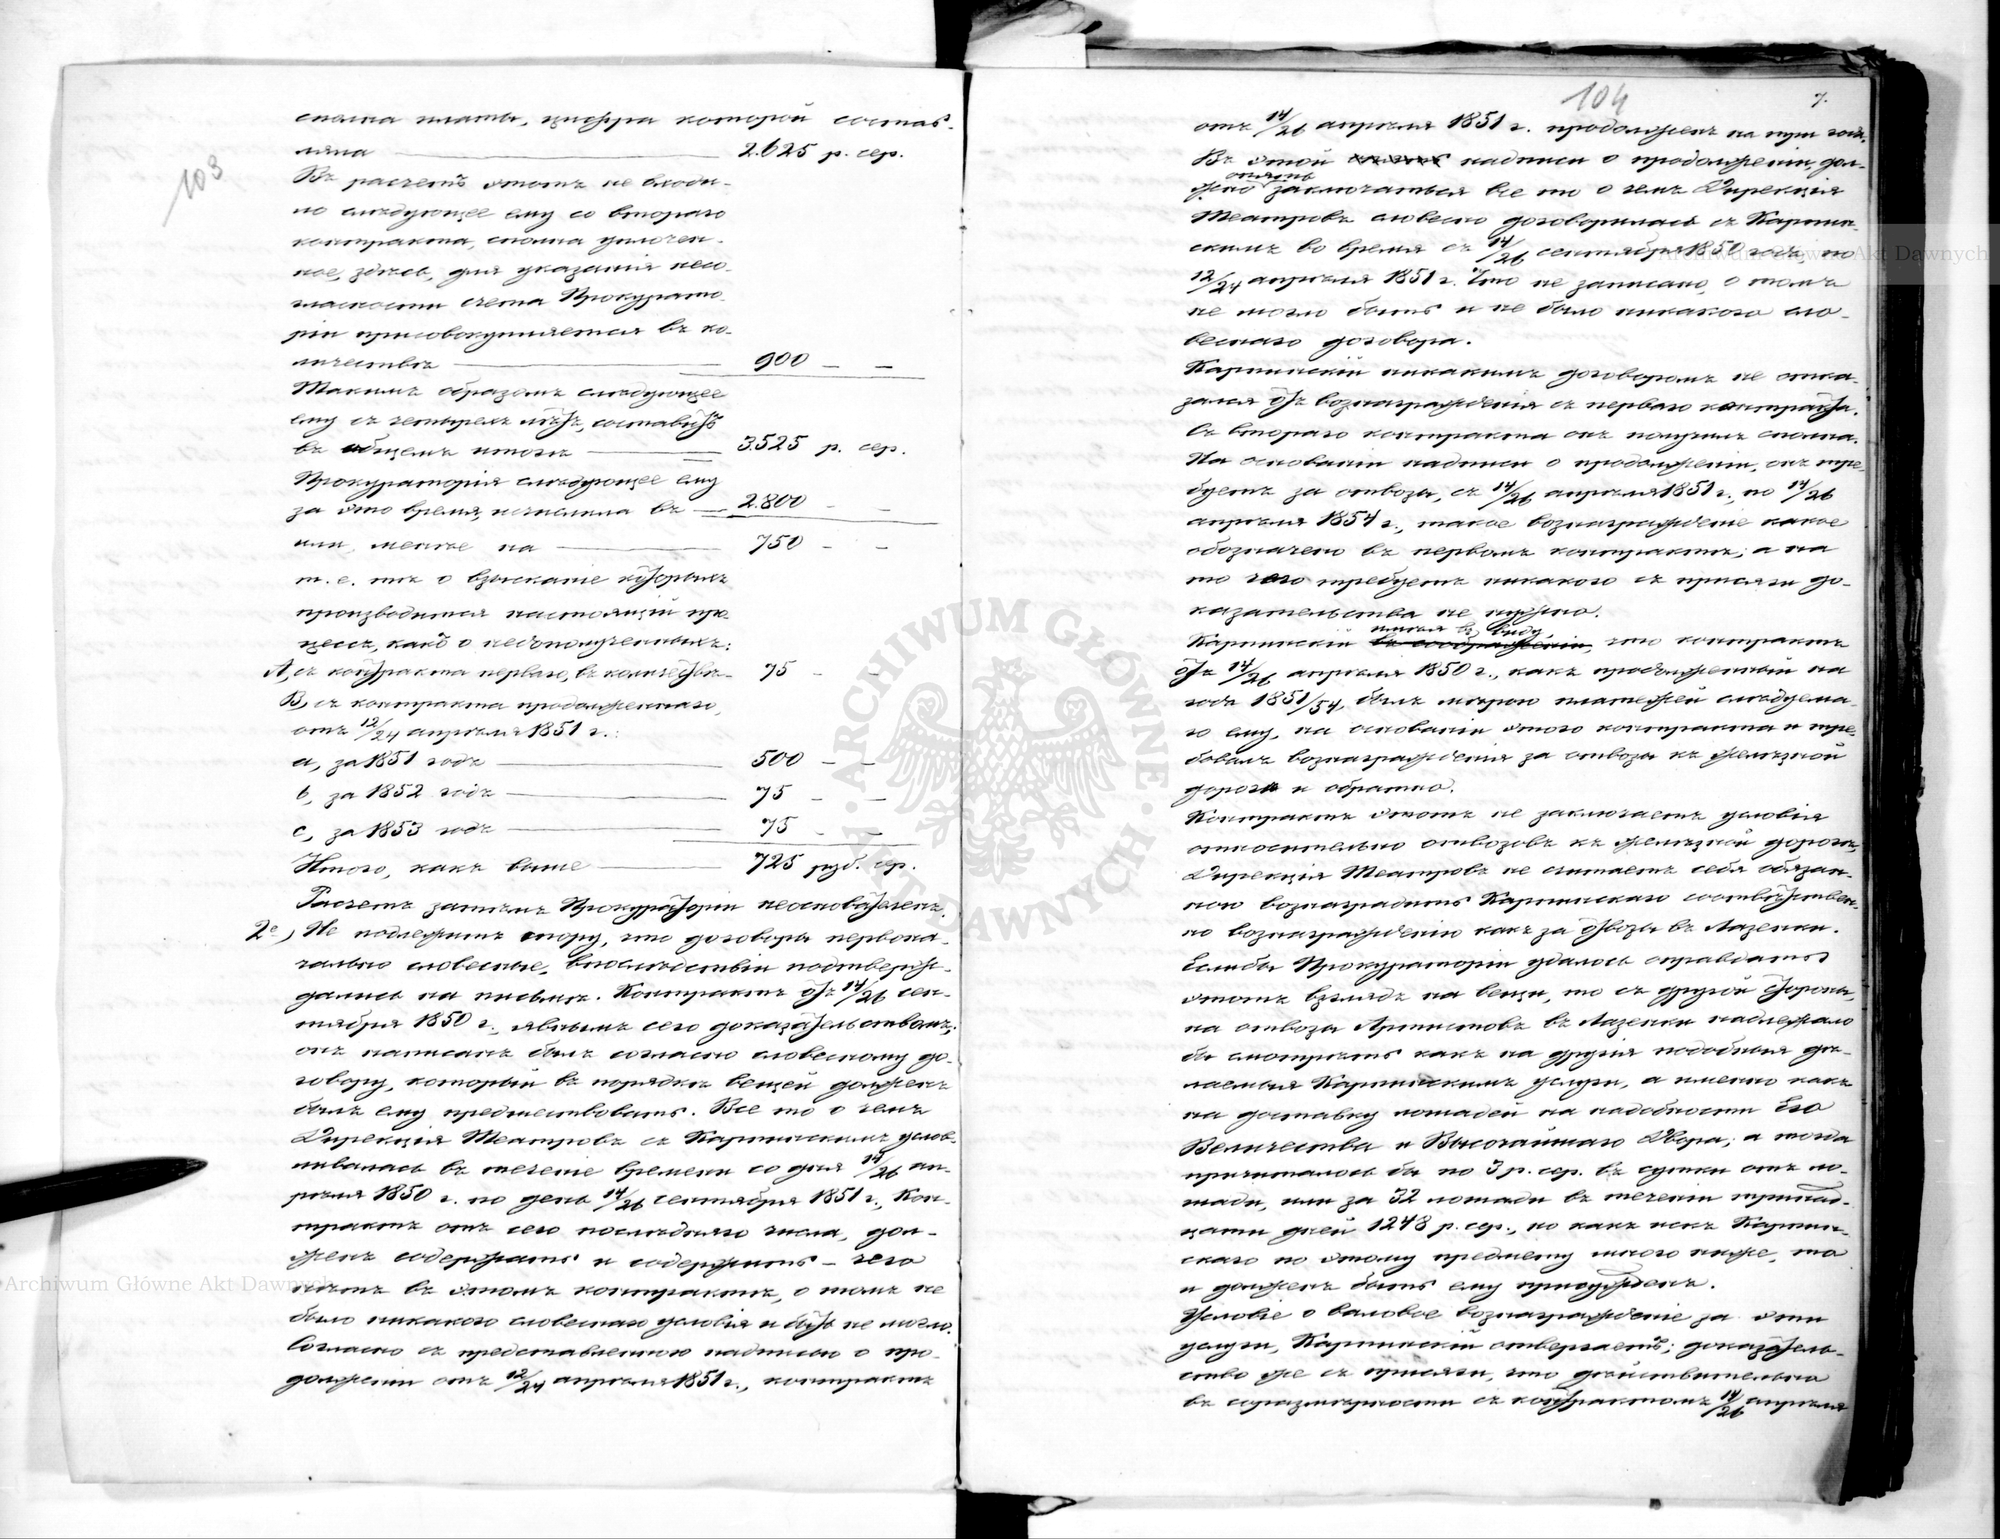 103
сполна платы, цифра которой состав-
ляла — 2.625 р. сер.
Въ расчетъ этотъ не входи-
ло слѣдующее ему со втораго
контракта, сполна уплочен-
ное, здѣсь, для указанія несо-
гласности счета Прокурато-
ріи присовокупляется въ ко-
личествѣ — 900 — —
Такимъ образомъ слѣдующее
ему съ четырехъ лѣтъ, составитъ
въ общемъ итогѣ — 3.525 р. сер.
Прокураторія слѣдующее ему
за это время, исчислила въ — 2.800 - -
или, менѣе на — 750 - -
т. е. тѣ о взысканіе которыхъ
производится настоящій про-
цессъ, какъ о недополученныхъ:
А, съ контракта перваго, въ количествѣ — 75 - -
В, съ контракта продолженнаго,
отъ 12/24 апрѣля 1851 г.:
a, за 1851 годъ — 500 — —
b, за 1852 годъ — 75 - —
c, за 1853 годъ — 75 - —
Итого, какъ выше — 725 руб. сер.
Расчетъ затѣмъ Прокураторіи неоснователенъ.
2е, Не подлежитъ спору, что договоры первона-
чально словесные, впослѣдствіи подтвержд-
дались на письмѣ. Контрактъ отъ 14/26 сен-
тября 1850 г. явнымъ сего доказательствомъ;
онъ написанъ былъ согласно словесному до-
говору, который въ порядкѣ вещей долженъ
былъ ему предшествовать. Все то о чемъ
Дирекція Театровъ съ Карпинскимъ услов-
ливалась въ теченіе времени со дня 14/26 ап-
рѣля 1850 г. по день 14/26 сентября 1851 г., Кон-
трактъ отъ сего послѣдняго числа, дол-
женъ содержать и содержитъ — чего
нѣтъ въ этомъ контрактѣ, о томъ не
было никакого словеснаго условія и быть не могло.
Согласно съ представленною надписью о про-
долженіи отъ 12/24 апрѣля 1851 г., контрактъ
104
7.
отъ 14/26 апрѣля 1851 г. продолженъ на три года.
Въ этой надписи о продолженіи, дол-
опять
жно заключаться все то о чемъ Дирекція
Театровъ словесно договорилась съ Карпин-
скимъ во время съ 14/26 сентября 1850 года, по
12/24 апрѣля 1851 г. Что не записано, о томъ
не могло быть и не было никакого сло-
веснаго договора.
Карпинскій никакимъ договоромъ не отка-
зался отъ вознагражденія съ перваго контракта.
Съ втораго контракта онъ получилъ сполна.
На основаніи надписи о продолженіи, онъ тре-
буетъ за отвозы, съ 14/26 апрѣля 1851 г., по 14/26
апрѣля 1854 г., такое вознагражденіе какое
обозначено въ первомъ контрактѣ; а на
то чего требуетъ никакого съ присяги до-
казательства не нужно.
имѣя въ виду,
Карпинскій въ соображеніи, что контрактъ
отъ 14/26 апрѣля 1850 г., какъ продолженный на
годъ 1851/54, былъ мѣрою платежей слѣдуема-
го ему, на основаніи этого контракта и тре-
бовалъ вознагражденія за отвозы къ желѣзной
дорогѣ и обратно.
Контрактъ этотъ не заключаетъ условія
относительно отвозовъ къ желѣзной дорогѣ,
Дирекція Театровъ не считаетъ себя обязан-
ною вознаградить Карпинскаго соотвѣтствен-
но вознагражденію какъ за отвозы въ Лазенки.
Еслибы Прокураторіи удалось оправдать
этотъ взглядъ на вещи, то съ другой стороны,
на отвозы Артистовъ въ Лазенки надлежало
бы смотрѣть какъ на другія подобныя дѣ-
лаемыя Карпинскимъ услуги, а именно какъ
на доставку лошадей на надобности Его
Величества и Высочайшаго Двора; а тогда
причиталось бы по 3 р. сер. въ сутки отъ ло-
шади, или за 32 лошади въ теченіи тринад-
цати дней 1248 р. сер., но какъ искъ Карпин-
скаго по этому предмету много ниже, то
и долженъ быть ему присужденъ.
Условіе о валовое вознагражденіе за эти
услуги, Карпинскій отвергаетъ; доказатель-
ство же съ присяги, что дѣйствительно
въ соразмѣрности съ контрактомъ 14/26 апрѣля
Archiwum Główne Akt Dawnych
Archiwum Główne Akt Dawnych
ARCHIWUM GŁÓWNE AKT DAWNYCH